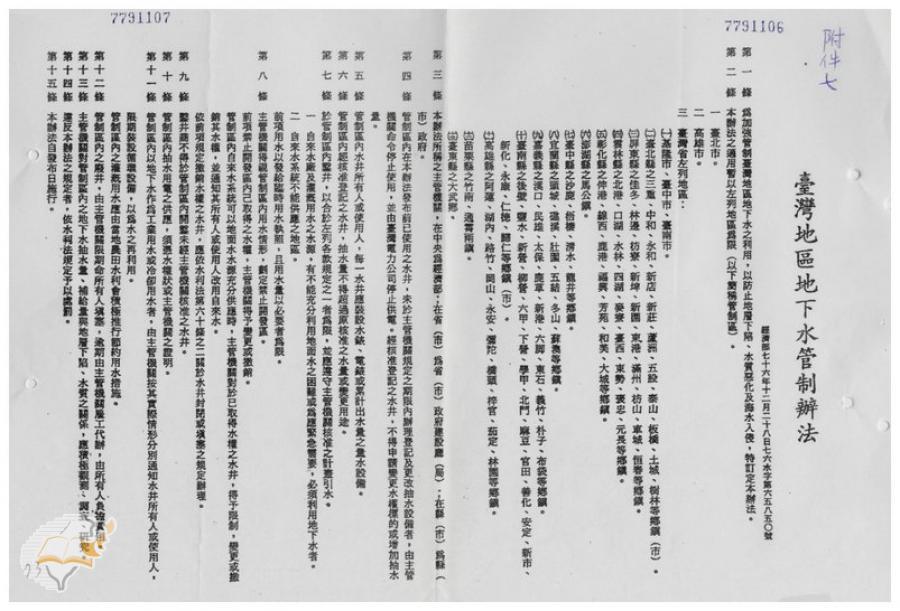 7791107
7791106
附件七
臺灣地區地下水管制辦法
經濟部七十六年十二月二十八日七六水字第六五八五〇號
第一條 為加強管制臺灣地區地下水之利用，以防止地層下陷、水質惡化及海水入侵，特訂定本辦法。
第二條 本辦法之適用暫以左列地區為限（以下簡稱管制區）。
一 臺北市。
二 高雄市。
三 臺灣省左列地區：
㈠基隆市、臺中市、臺南市。
㈡臺北縣之三重、中和、永和、新店、新莊、蘆洲、五股、泰山、板橋、土城、樹林等鄉鎮（市）。
㈢屏東縣之佳冬、林邊、枋寮、新埤、新園、東港、滿州、枋山、車城、恒春等鄉鎮。
㈣雲林縣之北港、口湖、水林、四湖、麥寮、臺西、東勢、褒忠、元長等鄉鎮。
㈤彰化縣之伸港、線西、鹿港、福興、芳苑、和美、大城等鄉鎮。
㈥澎湖縣之馬公鎮。
㈦宜蘭縣之頭城、礁溪、壯圍、五結、冬山、蘇澳等鄉鎮。
㈧臺中縣之沙鹿、梧棲、清水、龍井等鄉鎮。
㈨嘉義縣之溪口、民雄、太保、鹿草、新港、六腳、東石、義竹、朴子、布袋等鄉鎮。
㈩臺南縣之後壁、鹽水、新營、柳營、六甲、下營、學甲、北門、麻豆、官田、善化、安定、新市、
新化、永康、仁德、歸仁等鄉鎮（市）。
高雄縣之阿蓮、湖內、路竹、岡山、永安、彌陀、橋頭、梓官、茄萣、林園等鄉鎮。
苗栗縣之竹南、通霄兩鄉鎮。
臺東縣之大武鄉。
第三條 本辦法所稱之主管機關，在中央為經濟部；在省（市）為省（市）政府建設廳（局）；在縣（市）為縣（
市）政府。
第四條 管制區內在本辦法發布前已使用之水井，未於主管機關規定之期限內辦理登記及更改抽水設備者，由主管
機關命令停止使用，並由臺灣電力公司停止供電。經核准登記之水井，不得申請變更水權標的或增加抽水
量。
第五條 管制區內水井所有人或使用人，每一水井應裝設水錶、電錶或累計出水量之量水設備。
第六條 管制區內經核准登記之水井，抽水量不得超過原核准之水量或變更用途。
第七條 於管制區內鑿井，以合於左列各款規定之一者為限，並應遵守主管機關核准之計畫引水。
一 自來水廠及灌溉用水之水源，有不能充分利用地面水之困難或為應緊急需要，必須利用地下水者。
二 自來水系統不能供應之地區。
前項用水以發給臨時用水執照，且用水量以必要者為限。
第八條 主管機關得視管制區內用水情形，劃定禁止開發區。
前項禁止開發區內已取得之水權，主管機關得予變更或撤銷。
管制區內自來水系統可以地面水水源充分供應時，主管機關對於已取得水權之水井，得予限制，變更或撤
銷其水權，並通知其所有人或使用人改用自來水。
依前項規定撤銷水權之水井，依水利法第六十條之二關於水井封閉或填塞之規定辦理。
第九條 鑿井商不得於管制區內開鑿未經主管機關核准之水井。
第十條 管制區內抽水用電之供應，須憑水權狀或主管機關之證明。
第十一條 管制區內以地下水作為工業用水或冷卻用水者，由主管機關按其實際情形分別通知水井所有人或使用人，
限期裝設循環設備，以為水之再利用。
管制區內之灌溉用水應由當地農田水利會積極推行節約用水措施。
第十二條 管制區內之廢井，由主管機關限期命所有人填塞，逾期由主管機關雇工代辦，由所有人負擔費用。
第十三條 主管機關對管制區內之地下水抽水量、補給量與地層下陷、水質之關係，應積極觀測、調查、研究。
第十四條 違反本辦法之規定者，依水利法規定予以處罰。
第十五條 本辦法自發布日施行。
23